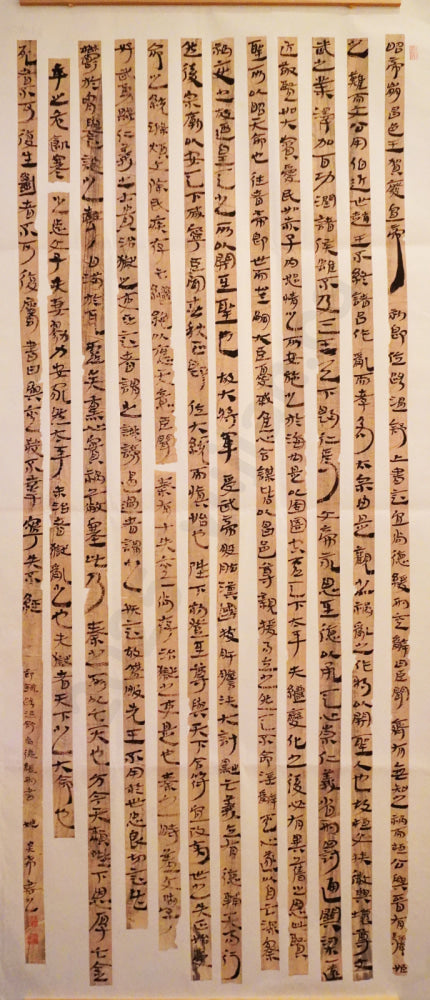 昭帝崩昌邑王賀廢宣帝初即位路溫舒上書言宜尚德緩刑其辭曰臣聞齊有無知之禍而桓公以興晉有驪姬
之難而文公用伯近世趙王不終諸呂作亂而孝文為太宗由是觀之禍亂之作將以開聖人也故桓文扶微興壞尊文
武之業澤加百功潤諸侯雖不及三王天下歸仁焉文帝永思至德以承天心崇仁義省刑罰通關梁一遠
近敬賢如大賓愛民如赤子內恕情之所安施之於海內是以囹圄空虛天下太平夫繼變化之後必有異舊之恩此賢
聖所以昭天命也往者昭帝即世而無嗣大臣憂戚焦心合謀皆以昌邑尊親援而立之然天不授命淫亂其心遂以自亡深察
禍變之故乃皇天之所以開至聖也故大將軍受命武帝股肱漢國披肝膽決大計黜亡義立有德輔天而行
然後宗廟以安天下咸寧臣聞春秋正即位大一統而慎始也陛下初登至尊與天合符宜改前世之失正始受
命之統滌煩文除民疾存亡繼絕以應天意臣聞秦有十失其一尚存治獄之吏是也秦之時羞文學
好武勇賤仁義之士貴治獄之吏正言者謂之誹謗遏過者謂之妖言故盛服先王不用於世忠良切言皆
鬱於胸譽諛之聲日滿於耳虛美熏心實禍蔽塞此乃秦之所以亡天下也方今天下賴陛下恩厚亡金
革之危飢寒之患父子夫妻戮力安家然太平未洽者獄亂之也夫獄者天下之大命也
死者不可復生者不可復屬書曰與其殺不辜寧失不經 路溫舒尚德緩刑書